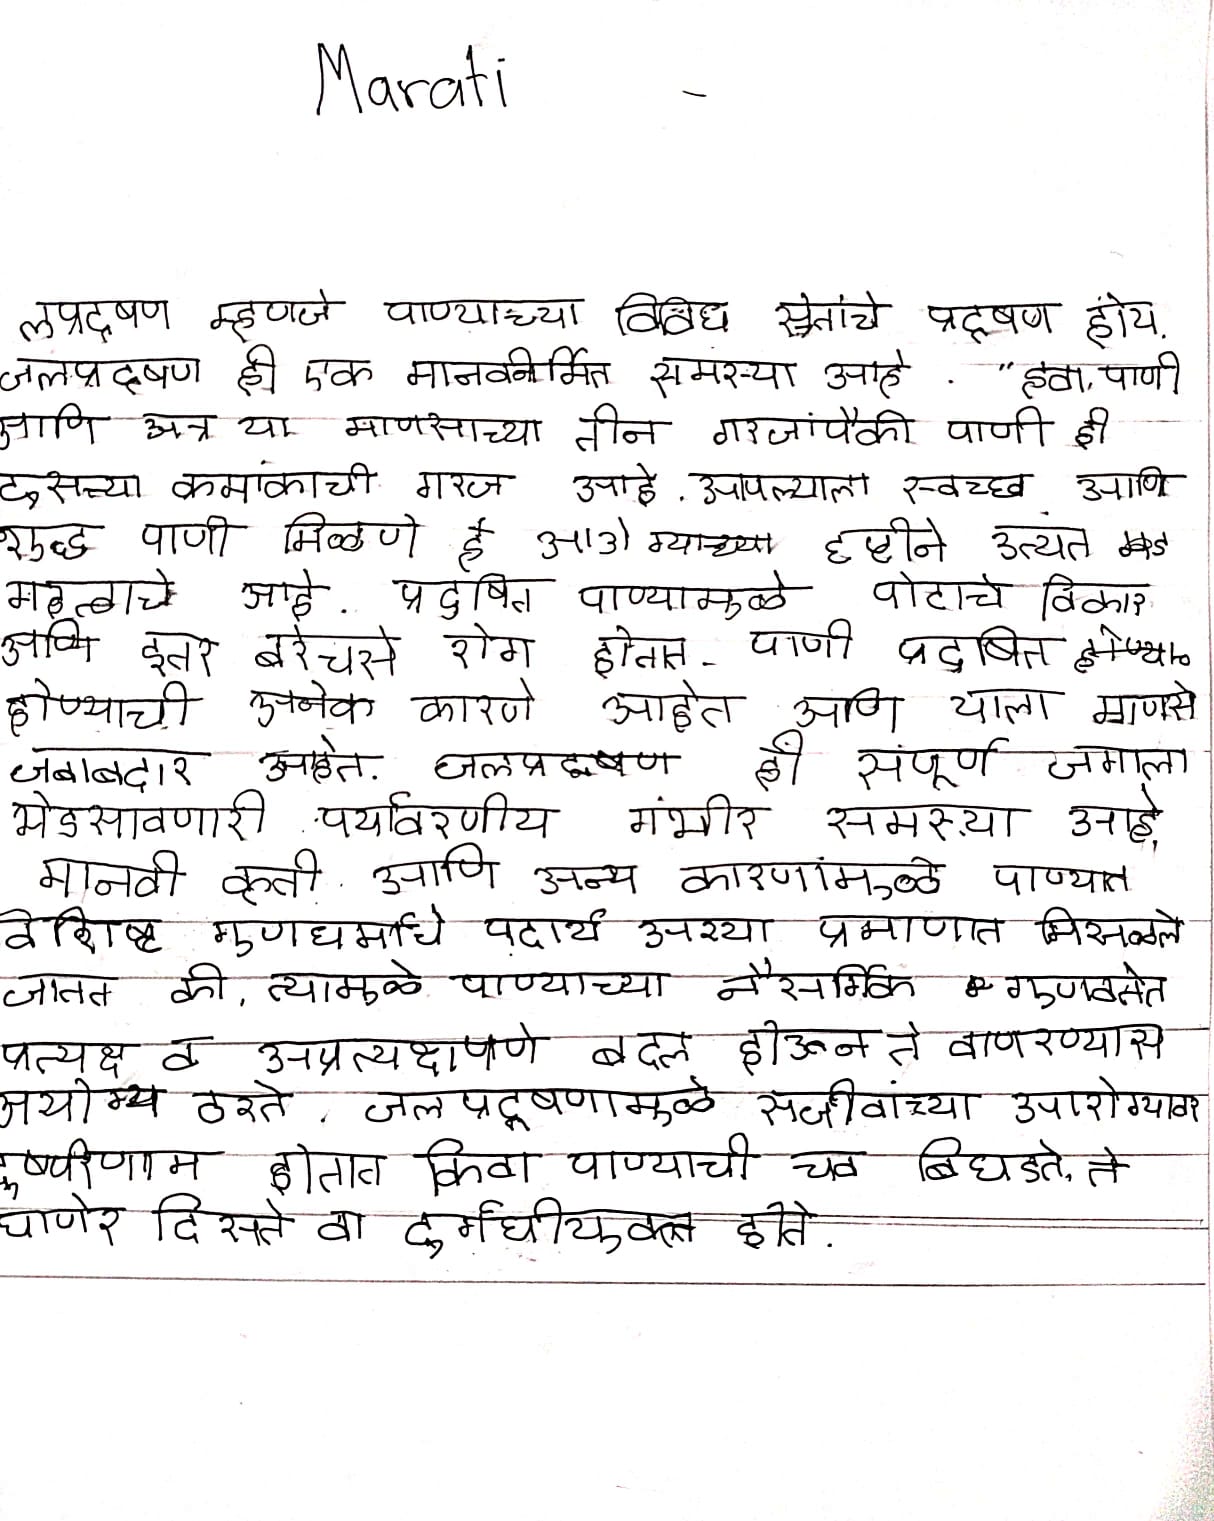 Marati -
लप्रदूषण म्हणजे पाण्याच्या विविध स्रेतांचे प्रदूषण होय.
जलप्रदूषण ही एक मानवनिर्मित समस्या आहे . "हवा, पाणी
आणि अन्न या माणसाच्या तीन गरजांपैकी पाणी ही
दुसऱ्या क्रमांकाची गरज आहे. आपल्याला स्वच्छ आणि
शुद्ध पाणी मिळणे हे आरोग्याच्या दृष्टीने अत्यंत
महत्वाचे आहे. प्रदुषित पाण्यामुळे पोटाचे विकार
आणि इतर बरेचसे रोग होतात- पाणी प्रदुषित
होण्याची अनेक कारणे आहेत आणि याला माणसे
जबाबदार आहेत. जलप्रदूषण ही संपूर्ण जगाला
भेडसावणारी पर्यावरणीय गंभीर समस्या आहे,
मानवी कृती आणि अन्य कारणांमुळे पाण्यात
विशिष्ट गुणधर्माचे पदार्थ अश्या प्रमाणात मिसळले
जातत की, त्यामुळे पाण्याच्या नैसर्गिक गुणवत्तेत
प्रत्यक्ष व अप्रत्यक्षपणे बदल होऊन ते वापरण्यास
अयोग्य ठरते . जलप्रदूषणामुळे सजीवांच्या आरोग्यावर
दुष्परिणाम होतात किंवा पाण्याची चव बिघडते, ते
घाणेर दिसते वा दुर्गंधीयुक्त होते.